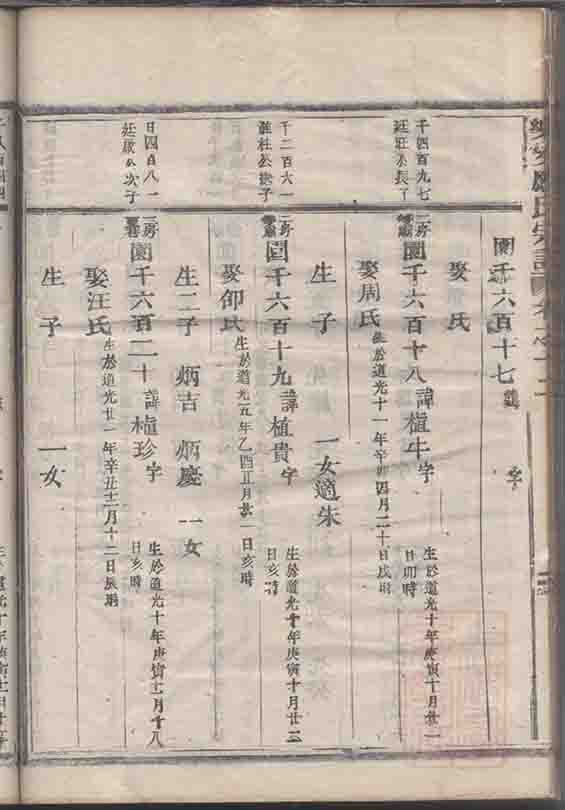 氏宗譜
園千六百十七
字
娶 氏
千四百九七
廷旺公長子
二房
園千六百十八 諱植牛 字
生於道光十年庚寅十月廿一
日卯時
娶周氏
生於道光十一年辛卯四月二十日戌時
生子 一女適朱
千二百六一
公次子
二房
園千六百十九 諱植貴 字
生於道光十年庚寅十月廿三
日亥時
娶仰氏
生於道光五年乙酉正月廿一日亥時
生二子 炳吉 炳慶 一女
日四百八一
公次子
二房
園千六百二十 諱植珍 字
生於道光十年庚寅十二月十八
日亥時
娶汪氏
生於道光廿一年辛丑十二月十二日辰時
生子 一女